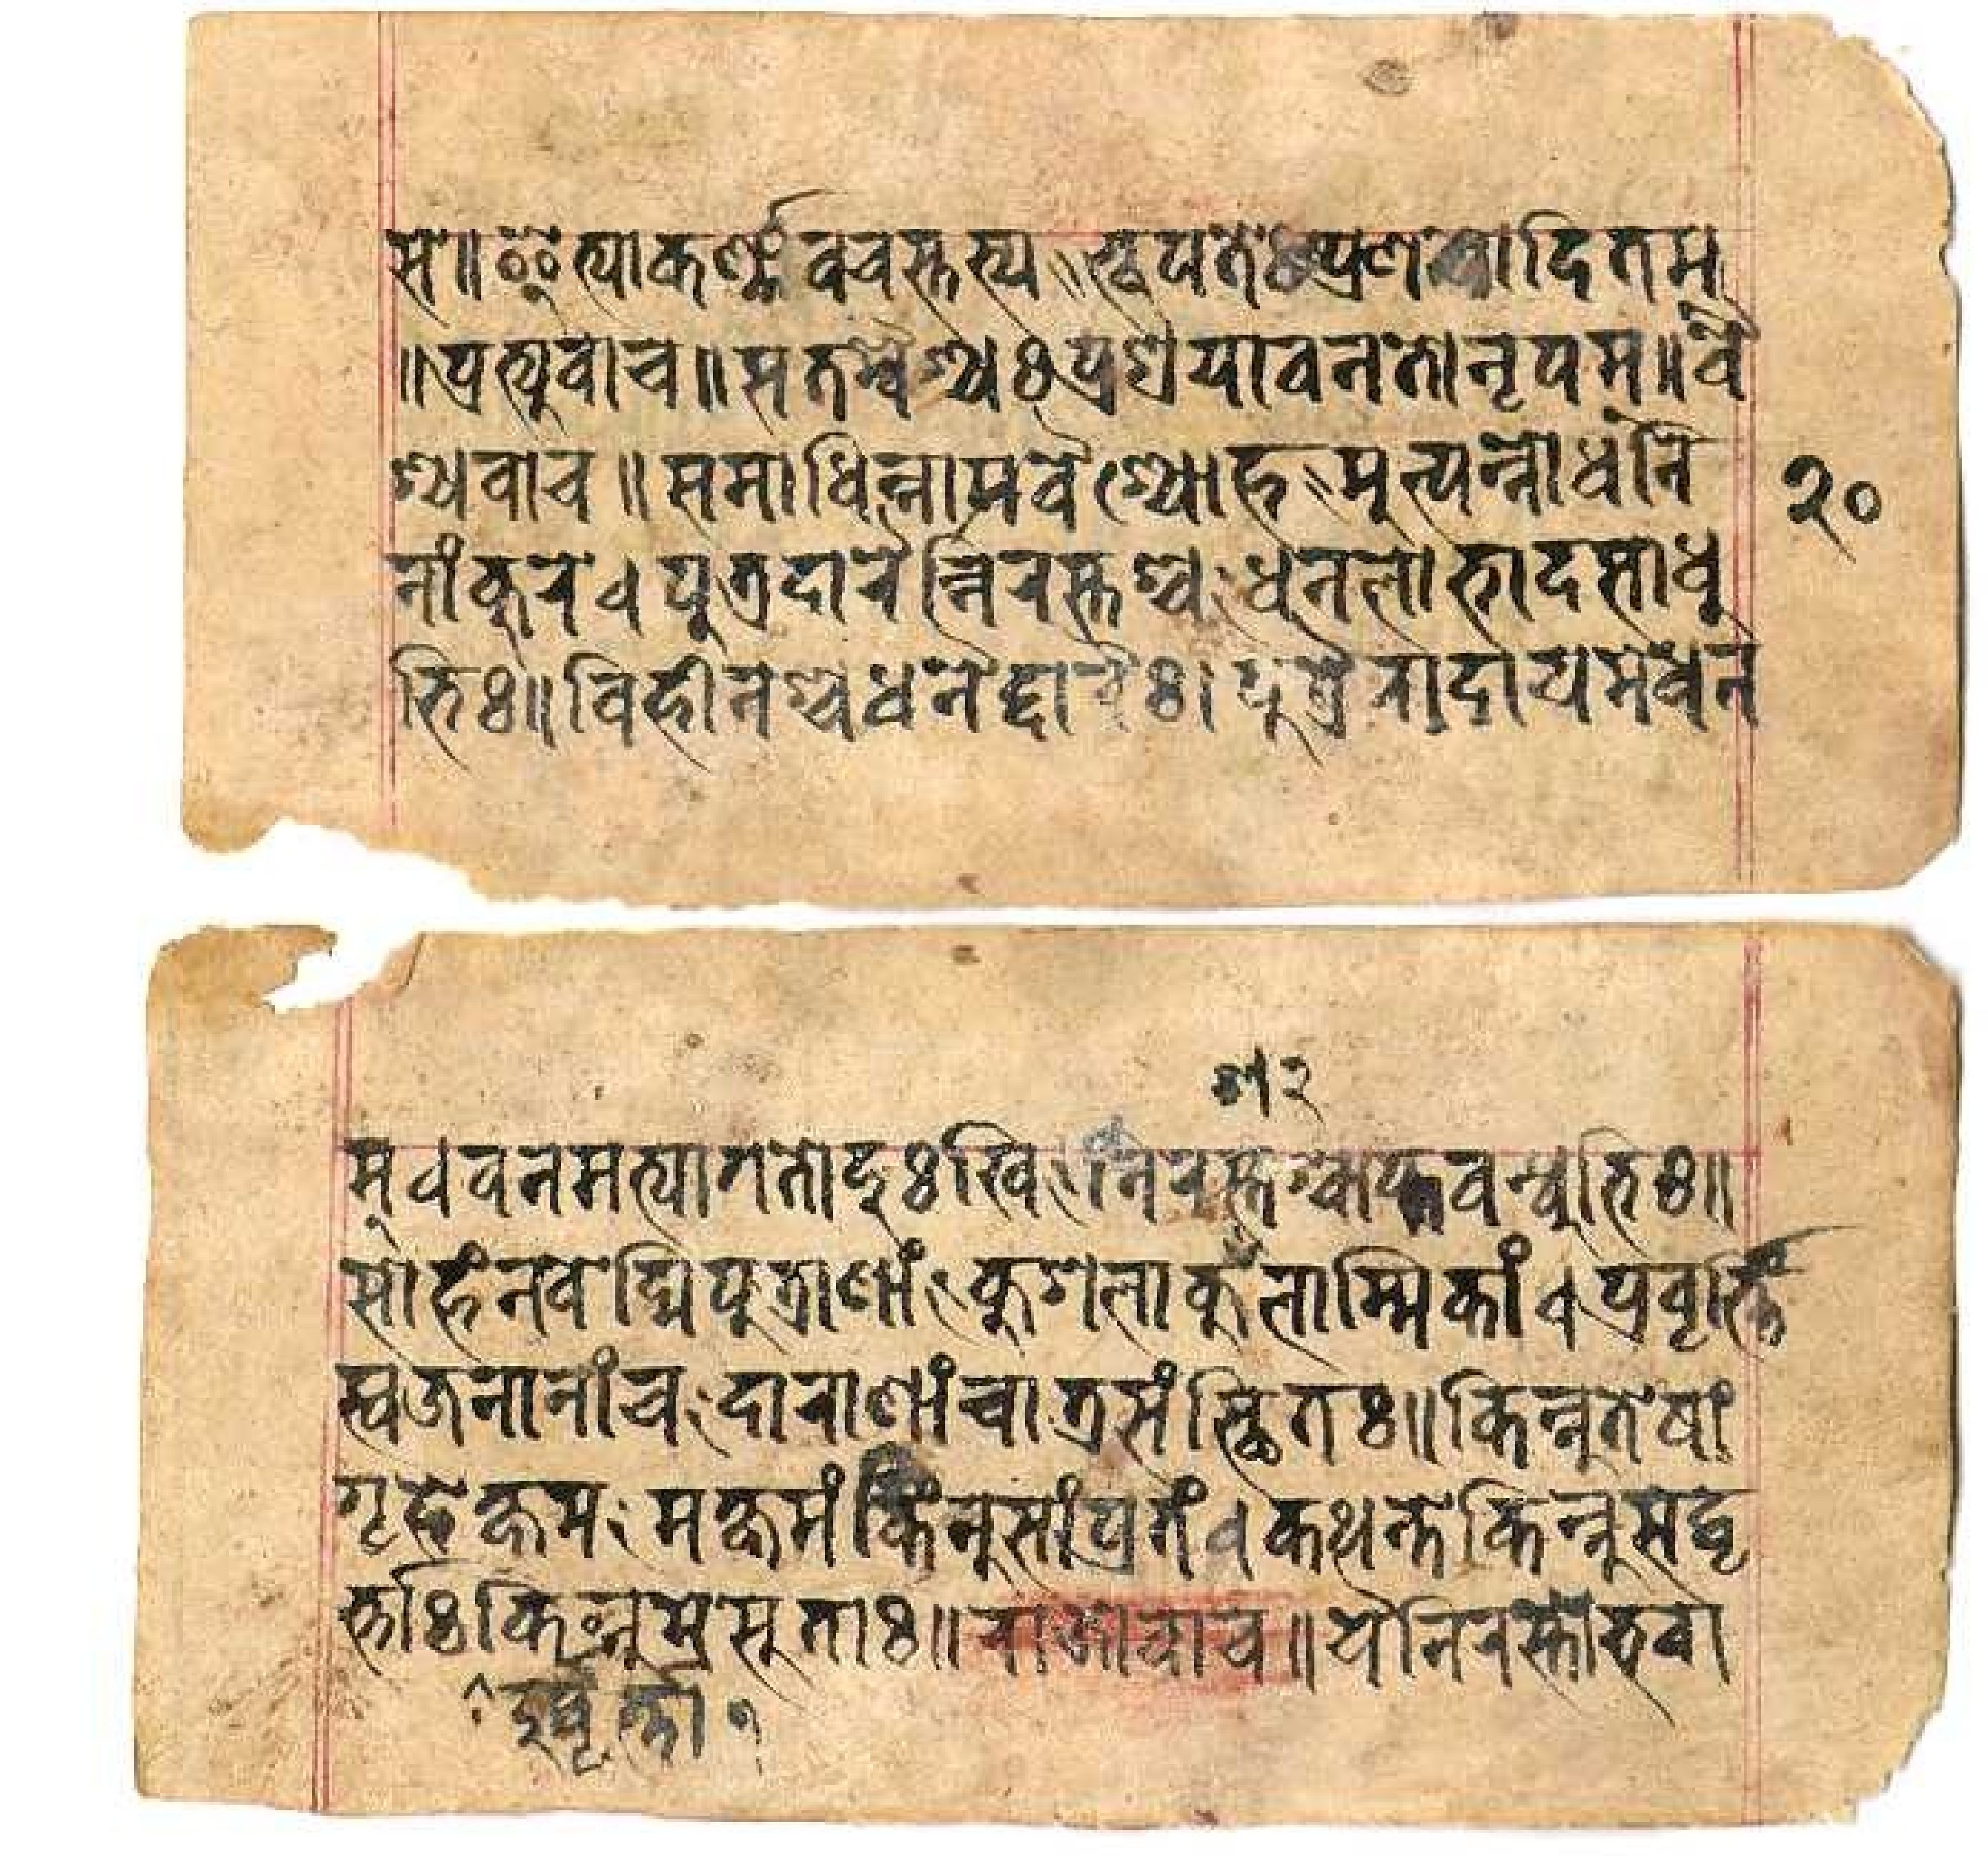 स॥इत्याकर्ण्णवचस्तस्य॥भूपतेःप्रणयोदितम्
॥प्रत्युवाच॥सतम्वैश्यःप्रश्रयावनतोनृपम्॥वै
श्यवाच॥समाधिर्न्नामवैश्योह॥मुत्पन्नोधनि
नांकुर।पुत्रदारैर्न्निरस्तश्च॰धनलोभादसाधु
भिः॥विहीनश्चधनैर्द्दारैः।पुत्रैरादायमेधन
२०
ल२
म्।वनमभ्यागतोदुःखि॰निरस्तश्चाप्तवन्धुभिः॥
सोहंनवेद्मिपुत्राणां॰कुशलाकुलात्मिकां।प्रवृत्तिं
स्वजनानांच॰दाराणांचात्रसंस्थितः॥किन्नुतेषां
गृहेक्षेम॰मक्षेमंकिंनुसांप्रतं।कथन्तेकिन्नुसद्वृ
त्ताःकिन्नुमेसुताः॥राजोवाच॥यैर्निरस्तोभवा
दुर्वृत्ता१